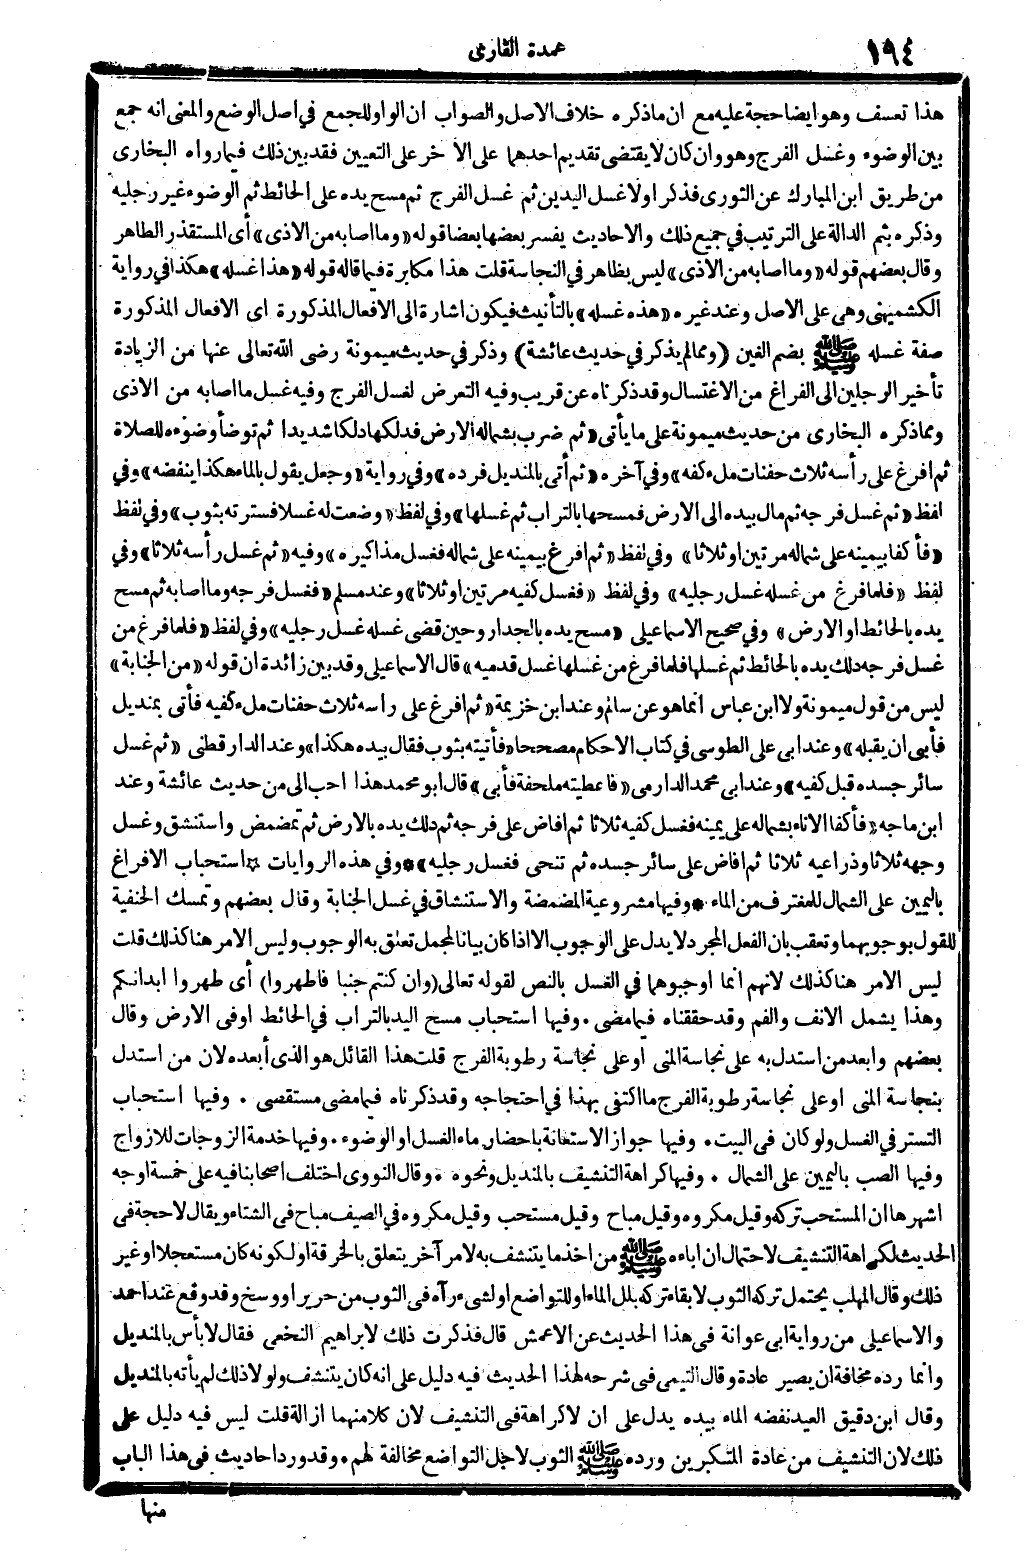 ١٩٤
عمدة القارى
هذا تعسف وهو ايضا حجة عليه مع ان ماذكره خلاف الاصل والصواب ان الواو للجمع في اصل الوضع والمعنى انه جمع
بين الوضوء وغسل الفرج وهو وان كان لا يقتضى تقديم احدهما على الآخر على التعيين فقد بين ذلك فيما رواه البخارى
من طريق ابن المبارك عن الثورى فذكر اولا غسل اليدين ثم غسل الفرج ثم مسح يده على الحائط ثم الوضوء غير رجليه
وذكره بثم الدالة على الترتيب في جميع ذلك والاحاديث يفسر بعضها بعضا قوله «وما اصابه من الاذى» أى المستقذر الطاهر
وقال بعضهم قوله «وما اصابه من الاذى» ليس بظاهر في النجاسة قلت هذا مكابرة فيما قاله قوله «هذا غسله» هكذا في رواية
الكشميهنى وهى على الاصل وعند غيره «هذه غسله» بالتأنيث فيكون اشارة الى الافعال المذكورة اى الافعال المذكورة
صفة غسله ﷺ بضم الغين (ومما لم يذكر في حديث عائشة) وذكر في حديث ميمونة رضى الله تعالى عنها من الزيادة
تأخير الرجلين الى الفراغ من الاغتسال وقد ذكرناه عن قريب وفيه التعرض لغسل الفرج وفيه غسل ما اصابه من الاذى
ومما ذكره البخارى من حديث ميمونة على ما يأتى «ثم ضرب بشماله الارض فدلكها دلكا شديدا ثم توضأ وضوءه للصلاة
ثم افرغ على رأسه ثلاث حفنات ملء كفه» وفي آخره «ثم أتى بالمنديل فرده» وفي رواية «وجعل يقول بالماء هكذا ينفضه» وفي
لفظ «ثم غسل فرجه ثم مال بيده الى الارض فمسحها بالتراب ثم غسلها» وفي لفظ «وضعت له غسلا فسترته بثوب» وفي لفظ
«فأكفأ بيمينه على شماله مرتين او ثلاثا» وفي لفظ «ثم افرغ بيمينه على شماله فغسل مذاكيره» وفيه «ثم غسل رأسه ثلاثا» وفي
لفظ «فلما فرغ من غسله غسل رجليه» وفي لفظ «فغسل كفيه مرتين او ثلاثا» وعند مسلم «فغسل فرجه وما اصابه ثم مسح
يده بالحائط او الارض» وفي صحيح الاسماعيلى «مسح يده بالجدار وحين قضى غسله غسل رجليه» وفي لفظ «فلما فرغ من
غسل فرجه دلك يده بالحائط ثم غسلها فلما فرغ من غسلها غسل قدميه» قال الاسماعيلى وقد بين زائدة ان قوله «من الجنابة»
ليس من قول ميمونة ولا ابن عباس انما هو عن سالم وعند ابن خزيمة «ثم افرغ على راسه ثلاث حفنات ملء كفيه فأتى بمنديل
فأبى ان يقبله» وعند ابى على الطوسى في كتاب الاحكام مصححا «فأتيته بثوب فقال بيده هكذا» وعند الدارقطنى «ثم غسل
سائر جسده قبل كفيه» وعند ابى محمد الدارمى «فاعطيته ملحفة فأبى» قال ابو محمد هذا احب الى من حديث عائشة وعند
ابن ماجه «فأكفا الاناء بشماله على يمينه فغسل كفيه ثلاثا ثم افاض على فرجه ثم دلك يده بالارض ثم تمضمض واستنشق وغسل
وجهه ثلاثا وذراعيه ثلاثا ثم افاض على سائر جسده ثم تنحى فغسل رجليه» * وفي هذه الروايات ☆ استحباب الافراغ
باليمين على الشمال للمغترف من الماء * وفيها مشروعية المضمضة والاستنشاق في غسل الجنابة وقال بعضهم وتمسك الحنفية
للقول بوجوبهما وتعقب بان الفعل المجرد لا يدل على الوجوب الا اذا كان بيانا لمجمل تعلق به الوجوب وليس الامر هنا كذلك قلت
ليس الامر هنا كذلك لانهم انما اوجبوهما في الغسل بالنص لقوله تعالى (وان كنتم جنبا فاطهروا) أى طهروا ابدانكم
وهذا يشمل الانف والفم وقد حققناه فيما مضى . وفيها استحباب مسح اليد بالتراب في الحائط او في الارض وقال
بعضهم وابعد من استدل به على نجاسة المنى او على نجاسة رطوبة الفرج قلت هذا القائل هو الذى أبعده لان من استدل
بنجاسة المنى او على نجاسة رطوبة الفرج ما اكتفى بهذا في احتجاجه وقد ذكرناه فيما مضى مستقصى . وفيها استحباب
التستر في الغسل ولو كان فى البيت . وفيها جواز الاستعانة باحضار ماء الغسل او الوضوء . وفيها خدمة الزوجات للازواج
وفيها الصب باليمين على الشمال . وفيها كراهة التنشيف بالمنديل ونحوه . وقال النووى اختلف اصحابنا فيه على خمسة اوجه
اشهرها ان المستحب تركه وقيل مكروه وقيل مباح وقيل مستحب وقيل مكروه في الصيف مباح فى الشتاء ويقال لا حجة فى
الحديث لكراهة التنشيف لاحتمال ان اباءه ﷺ من اخذ ما يتنشف به لامر آخر يتعلق بالخرقة او لكونه كان مستعجلا او غير
ذلك وقال المهلب يحتمل تركه الثوب لابقاء تركه بلل الماء او للتواضع او لشىء رآه فى الثوب من حرير او وسخ وقد وقع عند احمد
والاسماعيلى من رواية ابى عوانة فى هذا الحديث عن الاعمش قال فذكرت ذلك لابراهيم النخعى فقال لا بأس بالمنديل
وانما رده مخافة ان يصير عادة وقال التيمى فى شرحه لهذا الحديث فيه دليل على انه كان يتنشف ولولا ذلك لم يأته بالمنديل
وقال ابن دقيق العيد نفضه الماء بيده يدل على ان لا كراهة فى التنشيف لان كلا منهما ازالة قلت ليس فيه دليل على
ذلك لان التنشيف من عادة المتكبرين ورده ﷺ الثوب لاجل التواضع مخالفة لهم . وقد ورد احاديث فى هذا الباب
منها